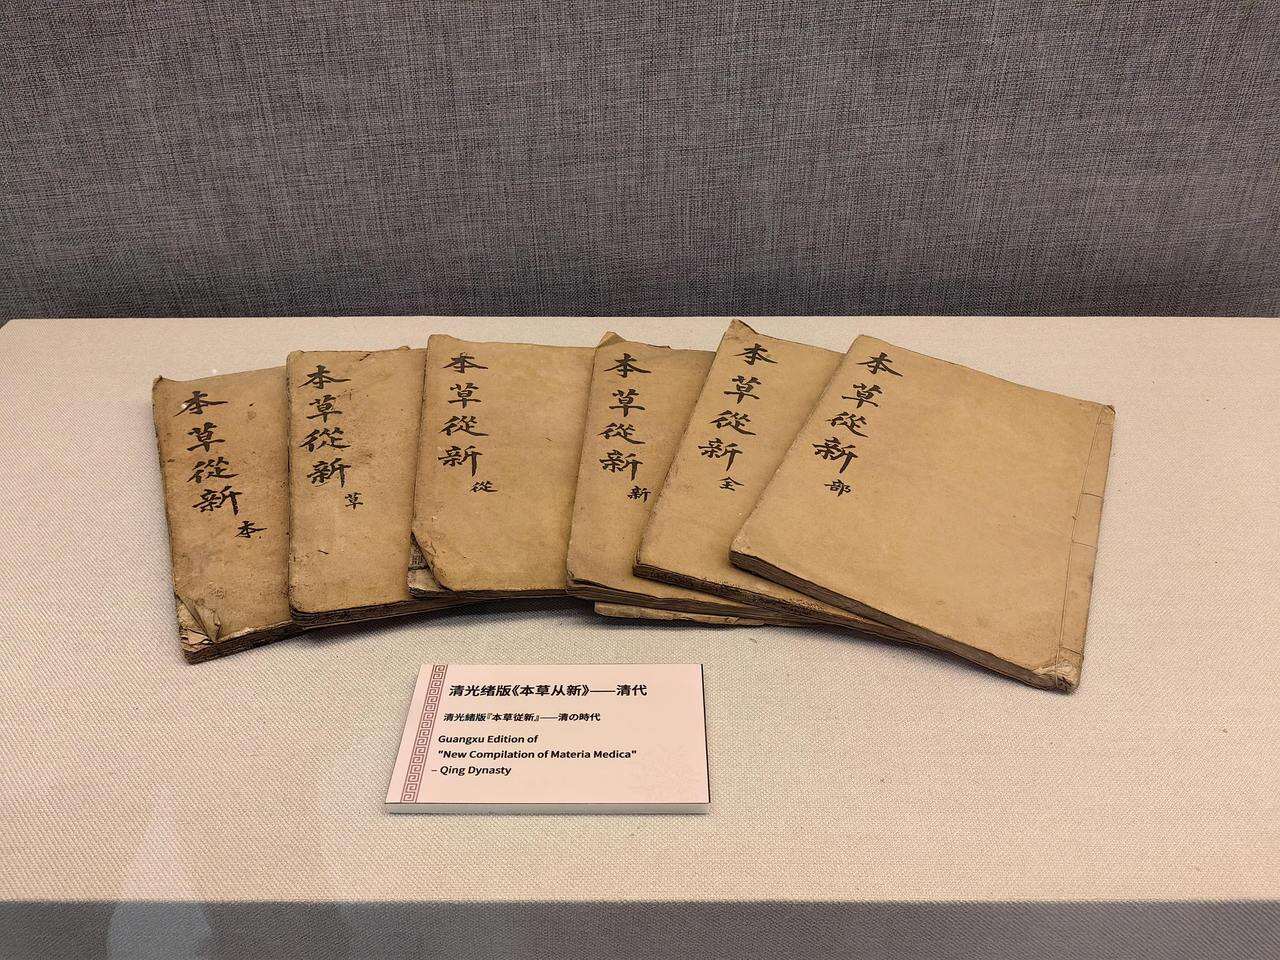 本草從新 本
本草從新 草
本草從新 從
本草從新 新
本草從新 全
本草從新 部
清光绪版《本草从新》——清代
清光緒版『本草從新』——清の時代
Guangxu Edition of
"New Compilation of Materia Medica"
– Qing Dynasty